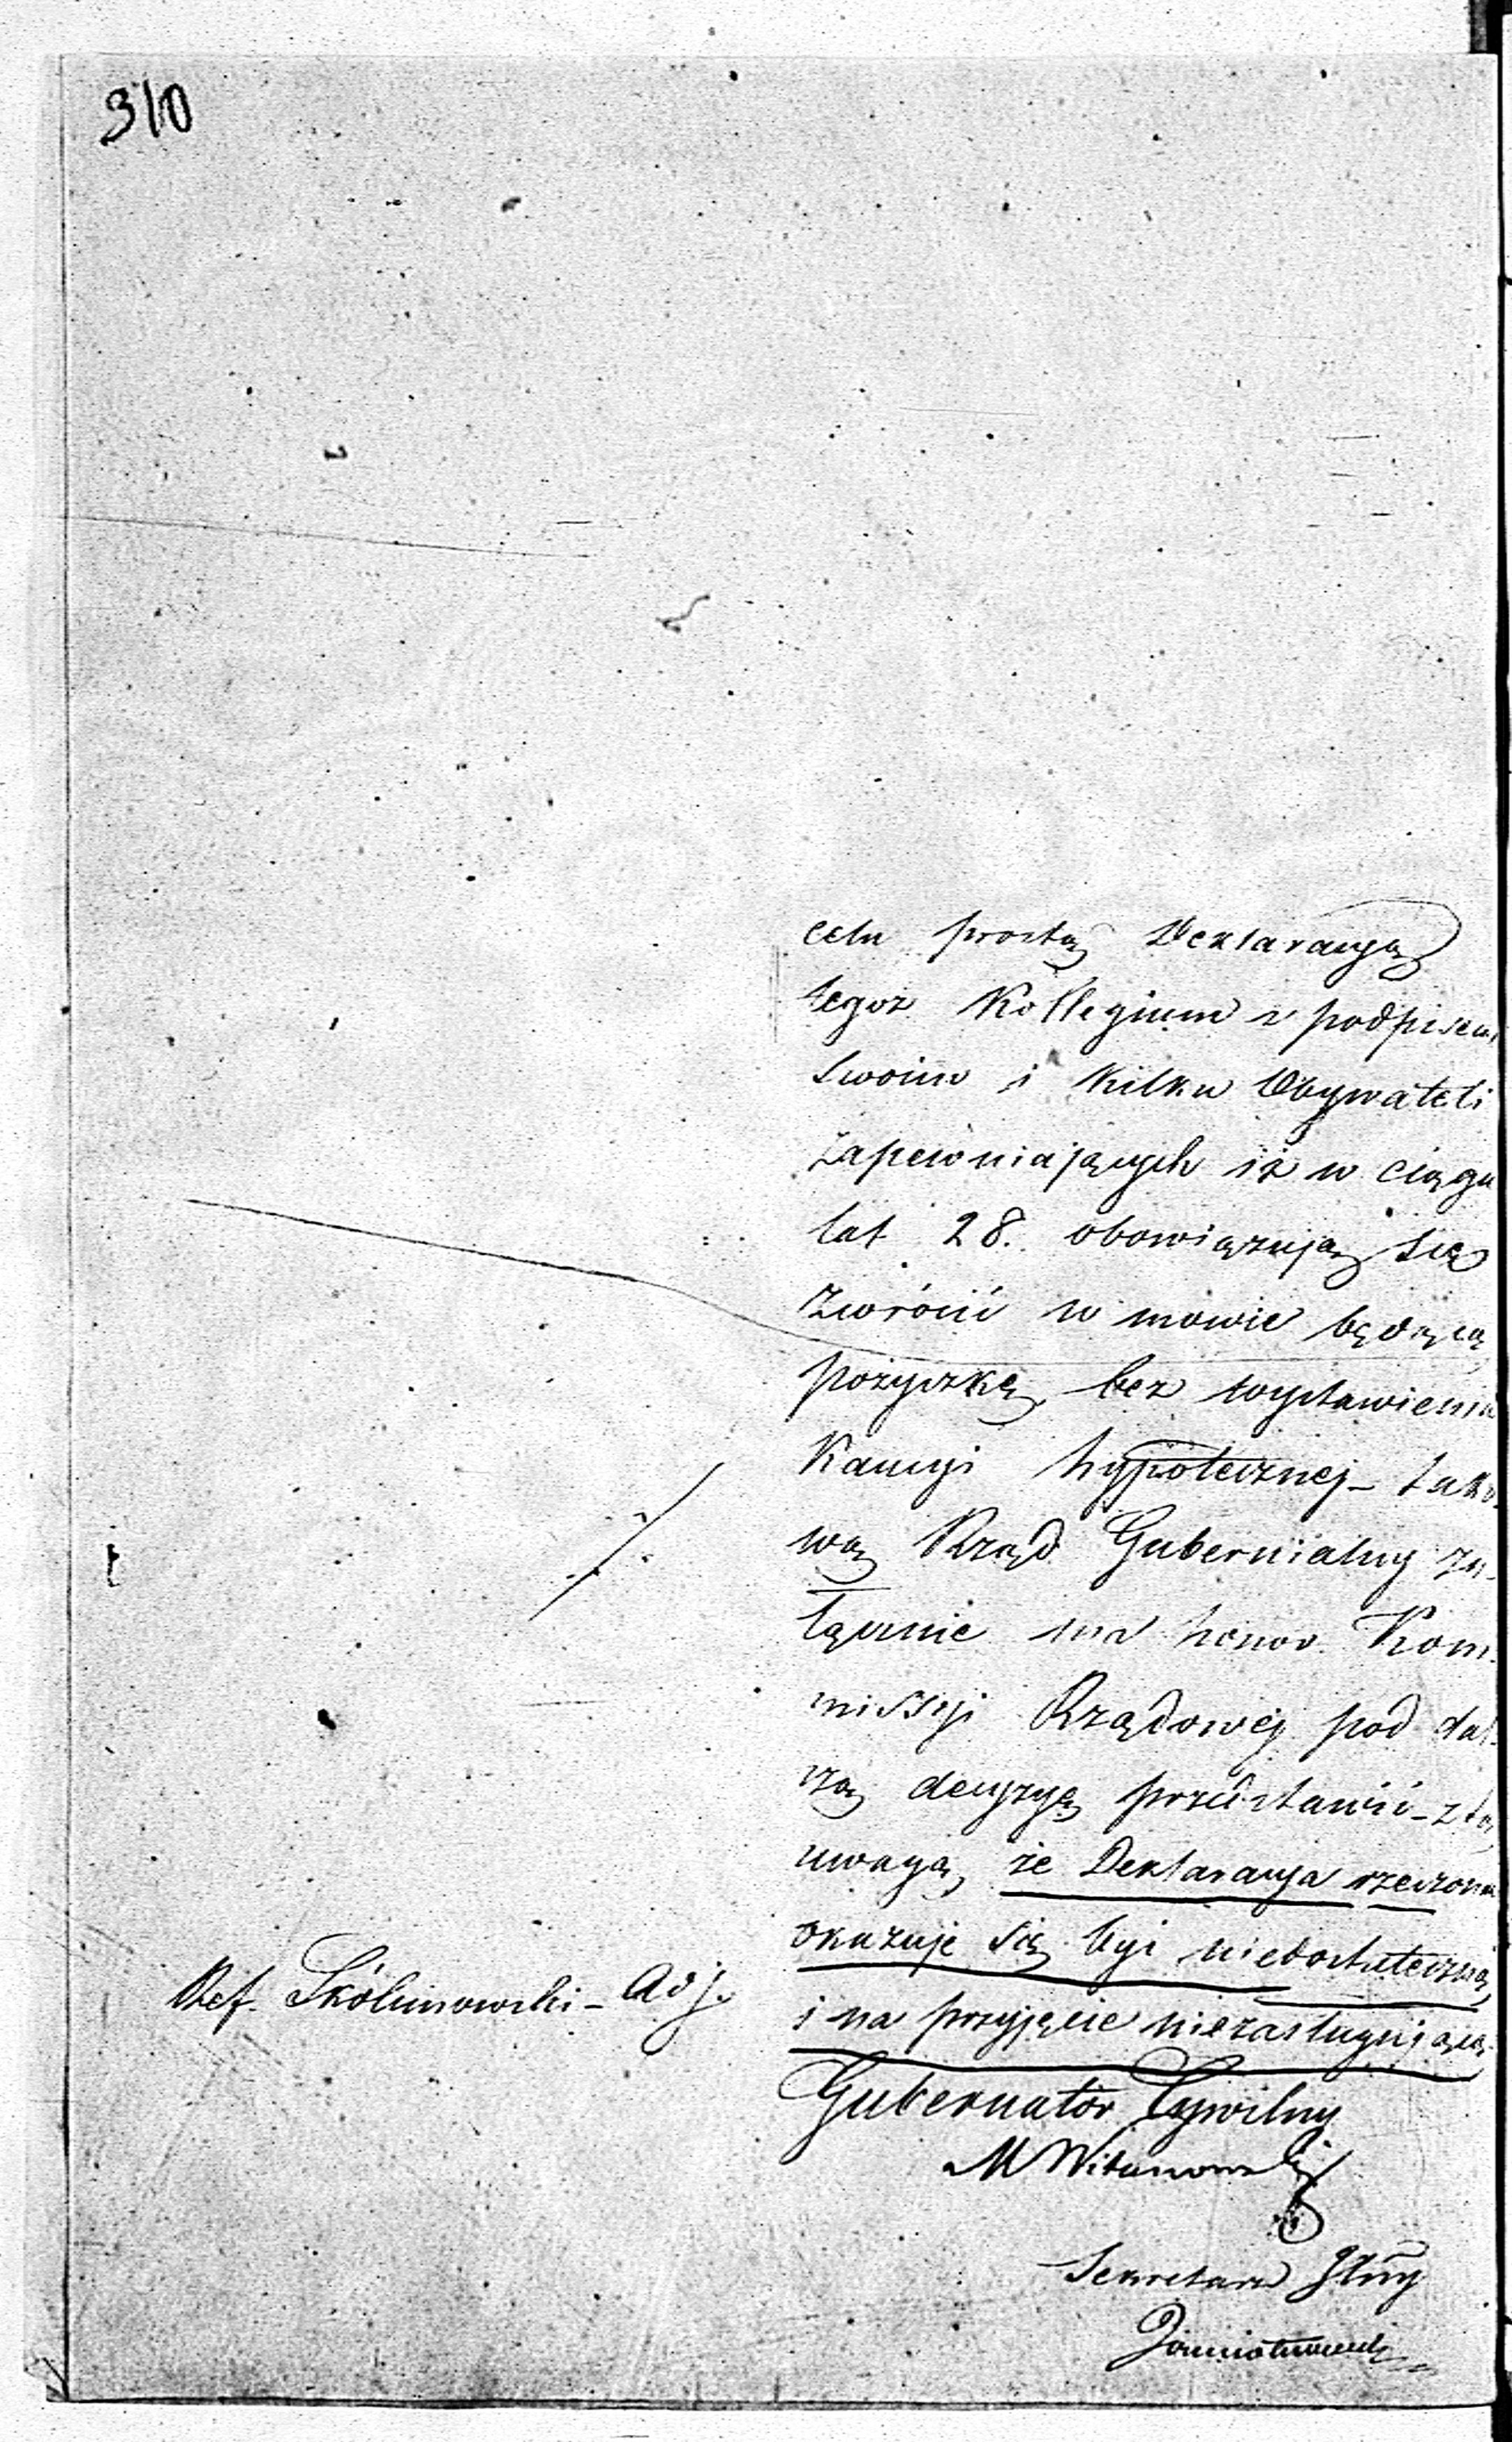 310
celu prostą Deklaracyą
tegoż Kollegium z podpisem
swoim i kilku Obywateli
zapewniających iż w ciągu
lat 28. obowiązują się
zwrócić w mowie będącą
pożyczkę, bez wystawienia
Kaucyi hypotecznej - tako-
wą Rząd Gubernialny za-
łącznie ma honor Kom-
missyi Rządowej pod dal-
szą decyzyę przedstawić - z tą
uwagą, że Deklaracya rzeczona
okazuje się być niedostateczną
i na przyjęcie niezasługującą
Ref. Skólimowski - Adj.
Gubernator Cywilny
M Witanowski
Sekretarz Jlny